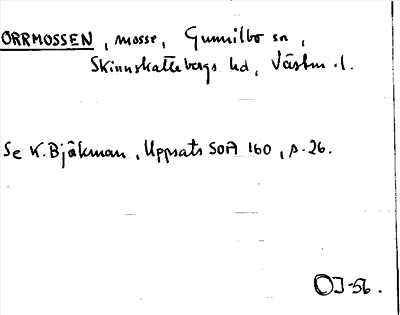 ORRMOSSEN, mosse, Gunnilbo sn,
Skinnskattebergs hd, Västm. l.
Se K. Bjäkman, Uppsats SOA 160, p. 26.
OJ-56.